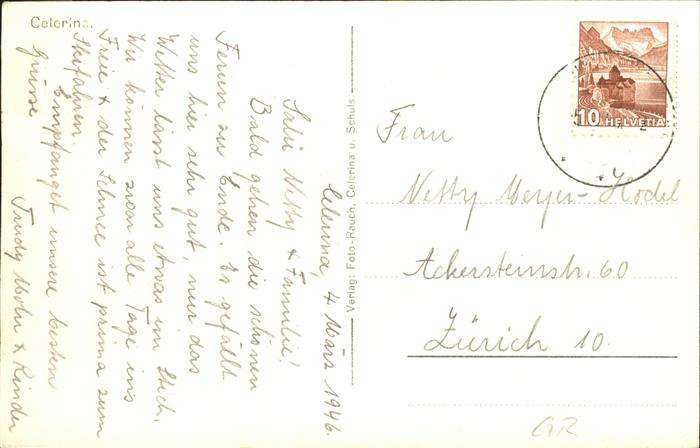 Celerina.
Celerina, 4 März 1946.
Salü Netty & Familie!
Bald gehen die schönen
Ferien zu Ende. Es gefällt
uns hier sehr gut, nur das
Wetter lässt uns etwas im Stich.
Wir können zwar alle Tage ins
Freie & der Schnee ist prima zum
Skifahren.
Empfanget unsere besten
Grüsse
Trudy & Kinder
Verlag: Foto-Rauch, Celerina u. Schuls
10 HELVETIA
Frau
Netty Meyer-Hodel
Ackersteinstr. 60
Zürich 10.
GR